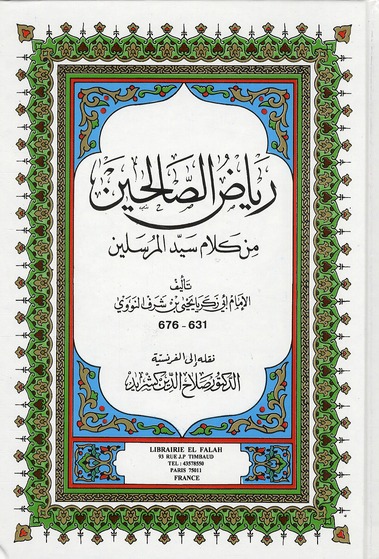 رياض الصالحين
من كلام سيد المرسلين
تأليف
الإمام أبي زكريا يحيى بن شرف النووي
631-676
نقله إلى الفرنسية
الدكتور صلاح الدين كشريد
LIBRAIRIE EL FALAH
93 RUE J.P TIMBAUD
TEL : 43578550
PARIS 75011
FRANCE